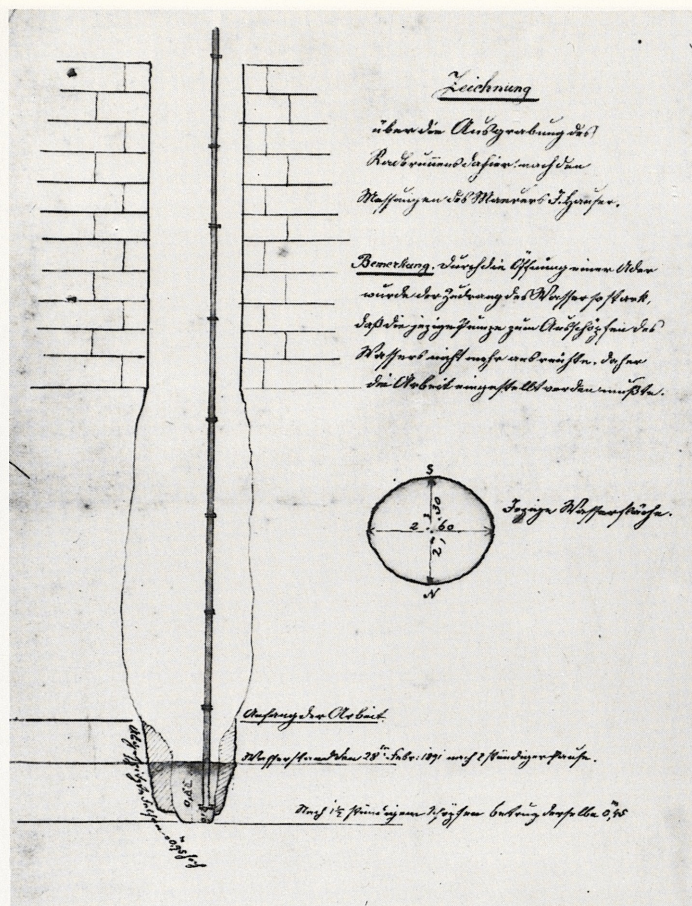 Zeichnung
über die Ausgrabung des
Radbrunnens dahier nach den
Messungen des Maurers J. Hauser.
Bemerkung. Durch die Öffnung einer Ader
wurde der Zudrang des Wassers so stark,
daß die jezige Pumpe zum Ausschöpfen des
Wassers nicht mehr ausreichte, daher
die Arbeit eingestellt werden mußte.
S
2,30
2,60
N
Jezige Wasserfläche.
Anfang der Arbeit
Wasserstand den 28ten Febr: 1891 nach 2 stündiger Pause.
Nach 1½ stündigem Schöpfen betrug derselbe 0,45